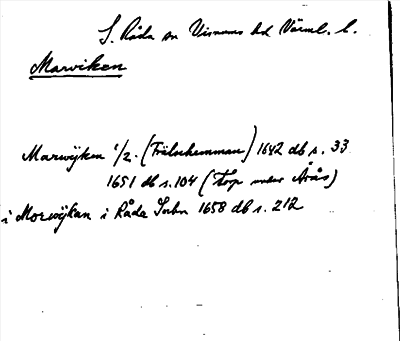 S. Råda sn Visnums hd Värml. l.
Marviken
Marwijken 1/2. (Frälsehemman) 1642 db s. 33
1651 db s. 104 (Torp under Årås)
i Morwijkan i Råda Sochn 1658 db s. 212